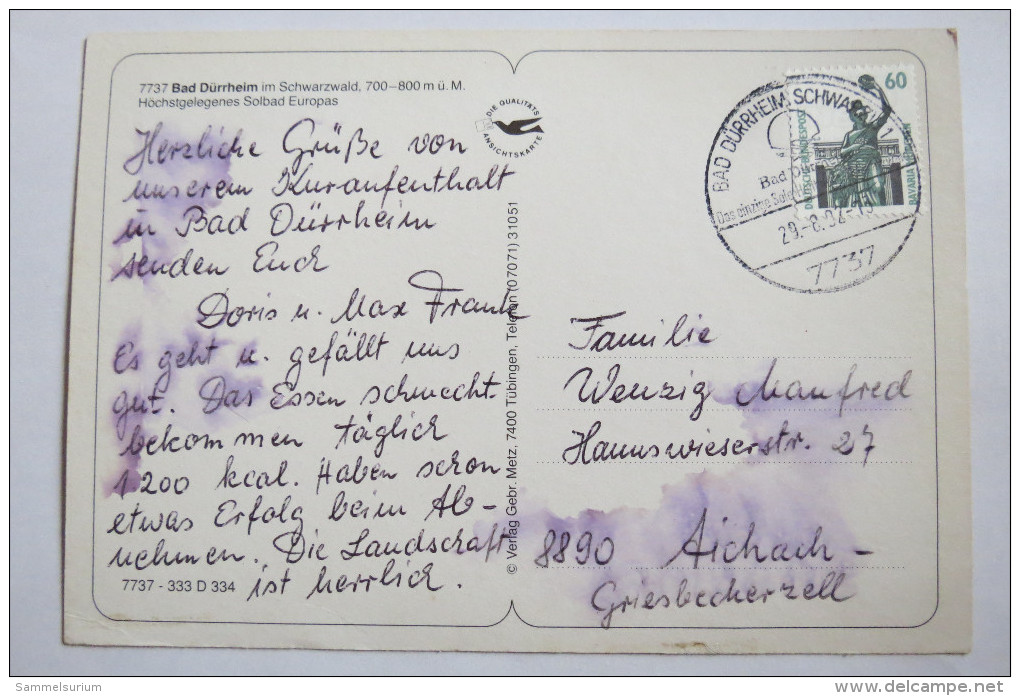 7737 Bad Dürrheim im Schwarzwald, 700–800 m ü. M.
Höchstgelegenes Solbad Europas
Herzliche Grüße von
unserem Kuraufenthalt
in Bad Dürrheim
senden Euch
Doris u. Max Frank
Es geht u. gefällt uns
gut. Das Essen schmeckt.
bekommen täglich
1200 kcal. Haben schon
etwas Erfolg beim Ab-
nehmen. Die Landschaft
ist herrlich.
7737 - 333 D 334
DIE QUALITÄTS
ANSICHTSKARTE
© Verlag Gebr. Metz, 7400 Tübingen, Telefon (07071) 31051
BAD DÜRRHEIM, SCHWARZW 1
Bad Dürr
Das einzige Sole
29.-8.
7737
60
DEUTSCHE BUNDESPOST
BAVARIA München
Familie
Wenzig Manfred
Hannswieserstr. 27
8890 Aichach -
Griesbeckerzell
Sammelsurium
www.delcampe.net